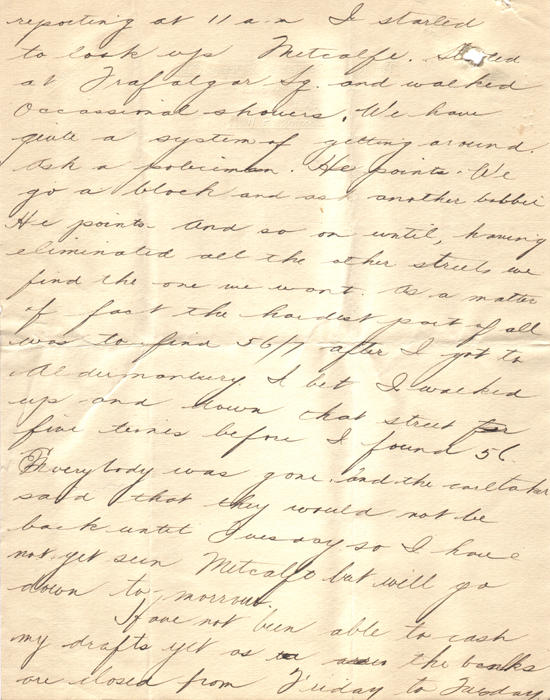 reporting at 11 a.m I started
to look up Metcalfe. Started
at Trafalgar Sq. and walked
Occassional showers. We have
quite a system of getting around.
Ask a policiman. He points. We
go a block and ask another bobbie
He points. And so on until, having
eliminated all the other streets we
find the one we want. As a matter
of fact the hardest part of all
was to find 56/7 after I got to
Aldermanbury. I bet I walked
up and down that street for
five times before I found 56.
Everybody was gone and the caretaker
said that they would not be
back until Tuesday so I have
not yet seen Metcalfe but will go
down to-morrow.
Have not been able to cash
my drafts yet as the banks
are closed from Friday to Tuesday